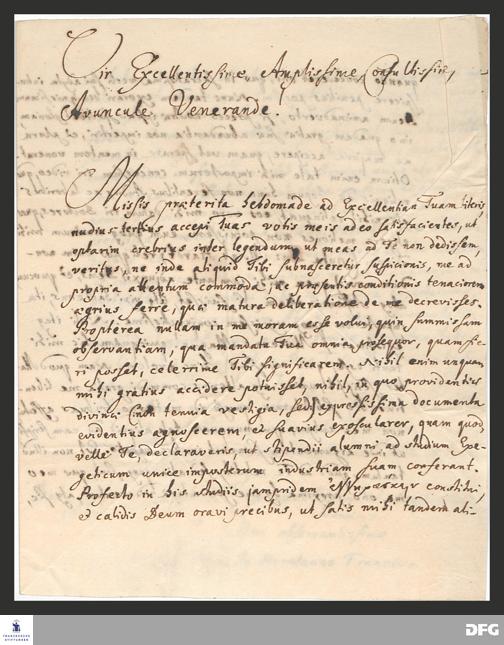 Vir Excellentissime, Amplissime, Consultissime,
Avuncule Venerande!
Missis præterita hebdomade ad Excellentiam Tuam literis
nudius tertius accepi Tuas votis meis adeo satisfacientes, ut
optarim crebrius inter legendum, ut meas ad Te non dedissem
veritus, ne inde aliquid Tibi subnasceretur suspicionis, me ad
propria attentum commoda, ac præsentis conditionis tenaciorem
ægrius ferre, quæ matura deliberatione de me decrevisses.
Propterea nullam in me moram esse volui, quin summissam
observantiam, qua mandata Tua omnia prosequor, quam fie-
ri posset, celerrime Tibi significarem. Nihil enim unquam
mihi gratius accidere potuisset, nihil, in quo providentiæ
divinæ (non tenuia vestigia, sed) expressissima documenta
evidentius agnoscerem, et suavius exoscularer, quam quod
velle Te, declaraveris, ut stipendii alumni ad studium Exe-
geticum unice imposterum industriam suam conferant.
Profecto in his studiis jampridem ἐγγηράσκειν constitui,
et calidis Deum oravi precibus, ut satis mihi tandem ali-
FRANCKESCHE
STIFTUNGEN
DFG